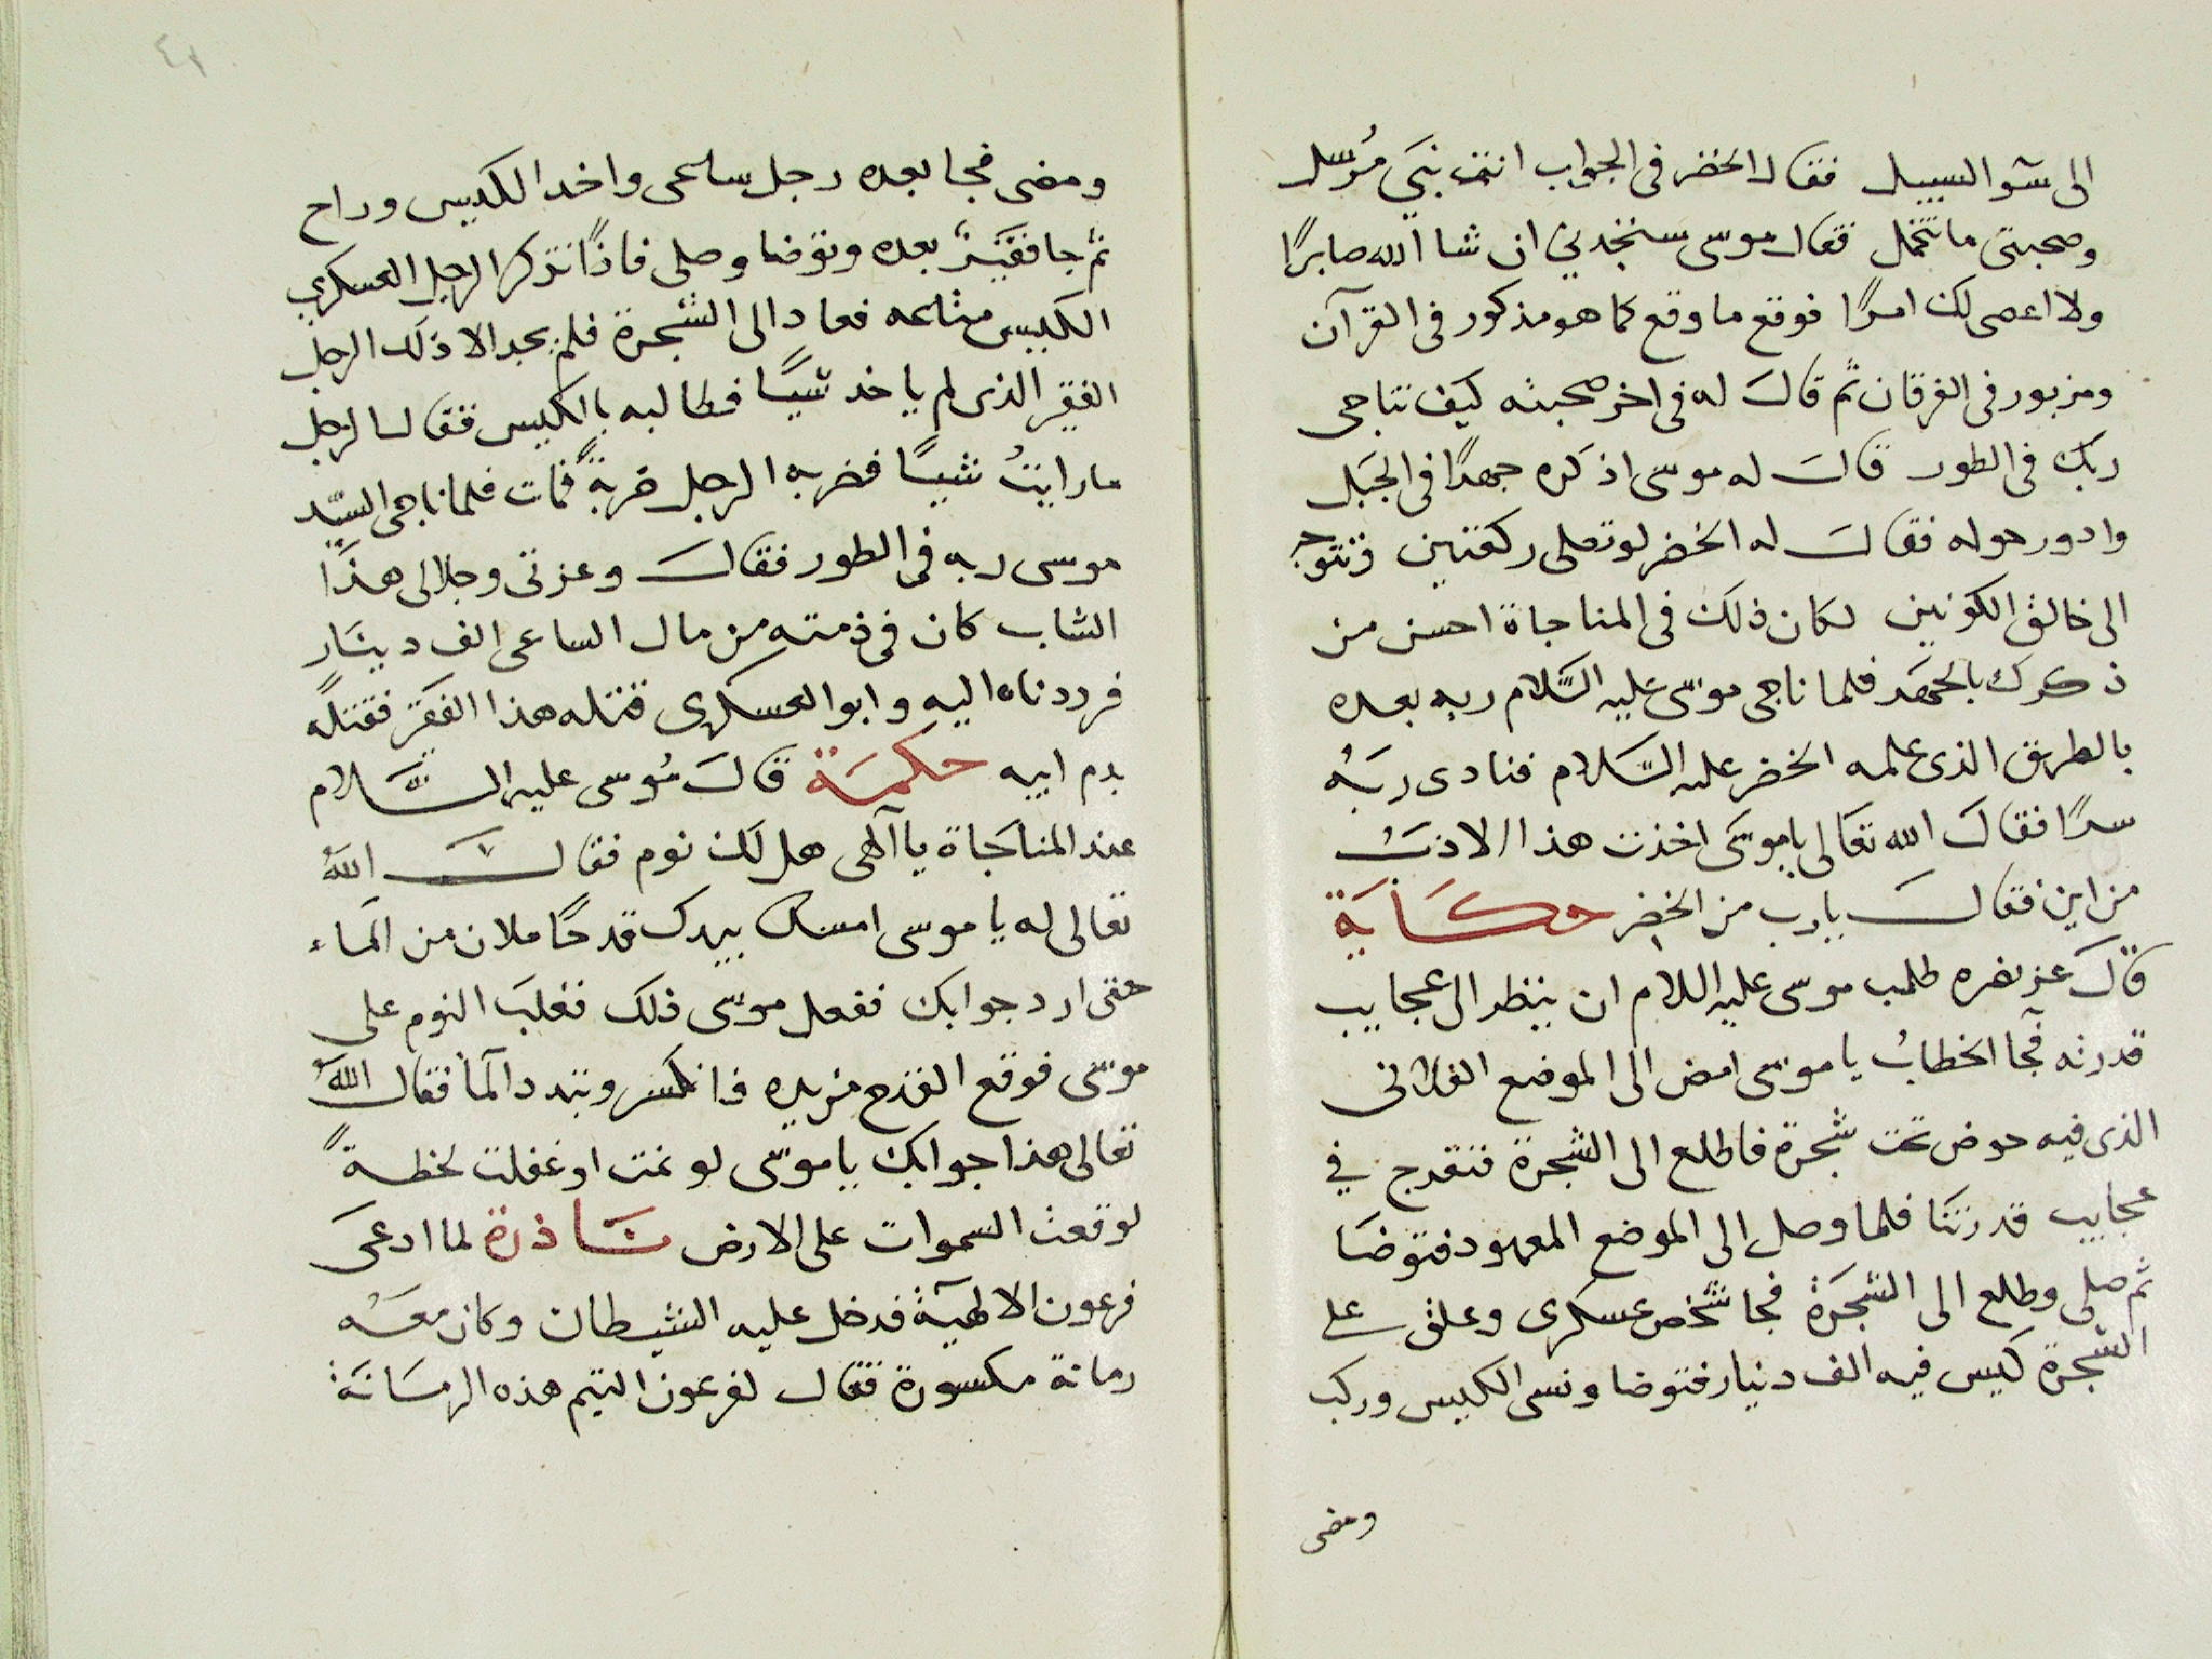 الى سوآ السبيل فقال الخضر فى الجواب انت نبَي مُرسل
وصحبتى ما تتحمل فقال موسى ستجدني ان شا الله صابرًا
ولا اعصى لك امرًا فوقع ما وقع كما هو مذكور فى القرآن
ومزبور فى الفرقان ثم قالَ له فى اخر صحبته كيَف تناجى
ربك فى الطور قالَ له موسى اذكره جهرًا فى الجبَل
وادور حوله فقالَ له الخضر لو تصلى ركعتين فتتوجه
الى خالق الكونين لكان ذلك فى المناجاة احسن من
ذكرك بالجهَر فلما ناجى موسَى عليه السَّلام ربه بعده
بالطريق الذى علمه الخضر عليه السَّلام فنادى ربَهُ
سرًا فقالَ الله تعَالى يا موسَى اخذت هذا الادبَ
من اين فقالَ يا رب من الخضر حكَايَة
قالَ عز نصره طلب موسى عليه اللام ان ينظر الى عجايب
قدرته فجآ الخطابُ يا موسَى امض الى الموضع الفلانى
الذى فيه حوض تحت شجرة فاطلع الى الشجرة فتفرج في
عجايب قدرتنَا فلما وصل الى الموضع المعهود فتوضَا
ثم صلى وطلع الى الشجَرَة فجا شخص عسكرى وعلق على
الشجرة كيس فيه الف دنيار فتوضا ونسى الكيس وركب
ومضى
٤٢
ومضى فجا بعده رجل ساعى واخد الكيس وراح
ثم جا فقيَرٌ بعده وتوضا وصلى فاذًا تذكر الرجل العسكرى
الكيس فعاد الى الشجرة فلم يجد الا ذلك الرجل
الفقير الذى لم ياخد شيًا فطالبه بالكيس فقال الرجل
ما رايتُ شيًا فضربه الرجل ضربةً فمات فلما ناجى السيّد
موسى ربه فى الطور فقالَ وعزتى وجلالى هذَا
الشاب كان فى ذمته من مال الساعى الف دينَار
فرددناه اليه وابو العسكرى قتله هذا الفقَير فقتلَه
بدم ابيه حكمَة قالَ مُوسى عليه السَّلام
عند المناجَاة يا آلهى هل لك نوم فقالَ اللهُ
تعالى له يا موسى امسك بيدك قدحًا ملان من المَاء
حتى ارد جوابك ففعل موسَى ذلك فغلبَ النوم على
موسَى فوقع القدح من يده فانكسر وتبدد المآ فقال اللهُ
تعالى هذا جوابك يا موسَى لو نمت او غفلت لحظةً
لوقعت السموات على الارض نَاذرة لما ادعَى
فرعون الالهيَّة فدخل عليه الشيطان وكان معَهُ
رمانة مكسورة فقال لفرعون التيم هذه الرمَانَة